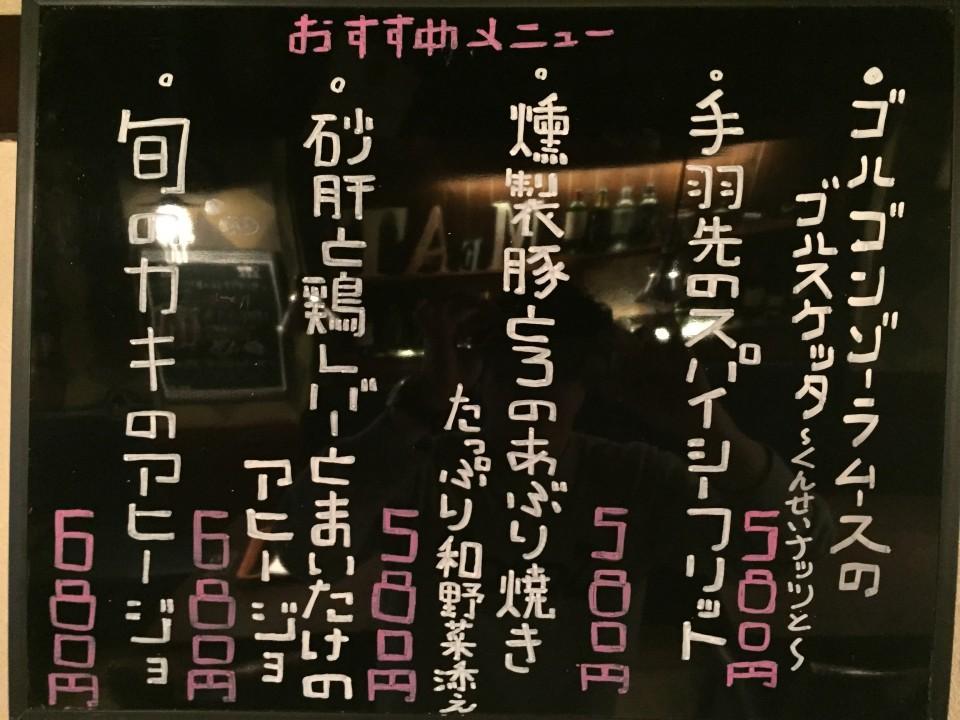 おすすめメニュー
・ゴルゴンゾーラムースの
ゴルスケッタ~くんせいナッツと~
580円
・手羽先のスパイシーフリット
580円
・燻製豚とろのあぶり焼き
たっぷり和野菜添え
580円
・砂肝と鶏レバーとまいたけの
アヒージョ
680円
・旬のカキのアヒージョ
680円